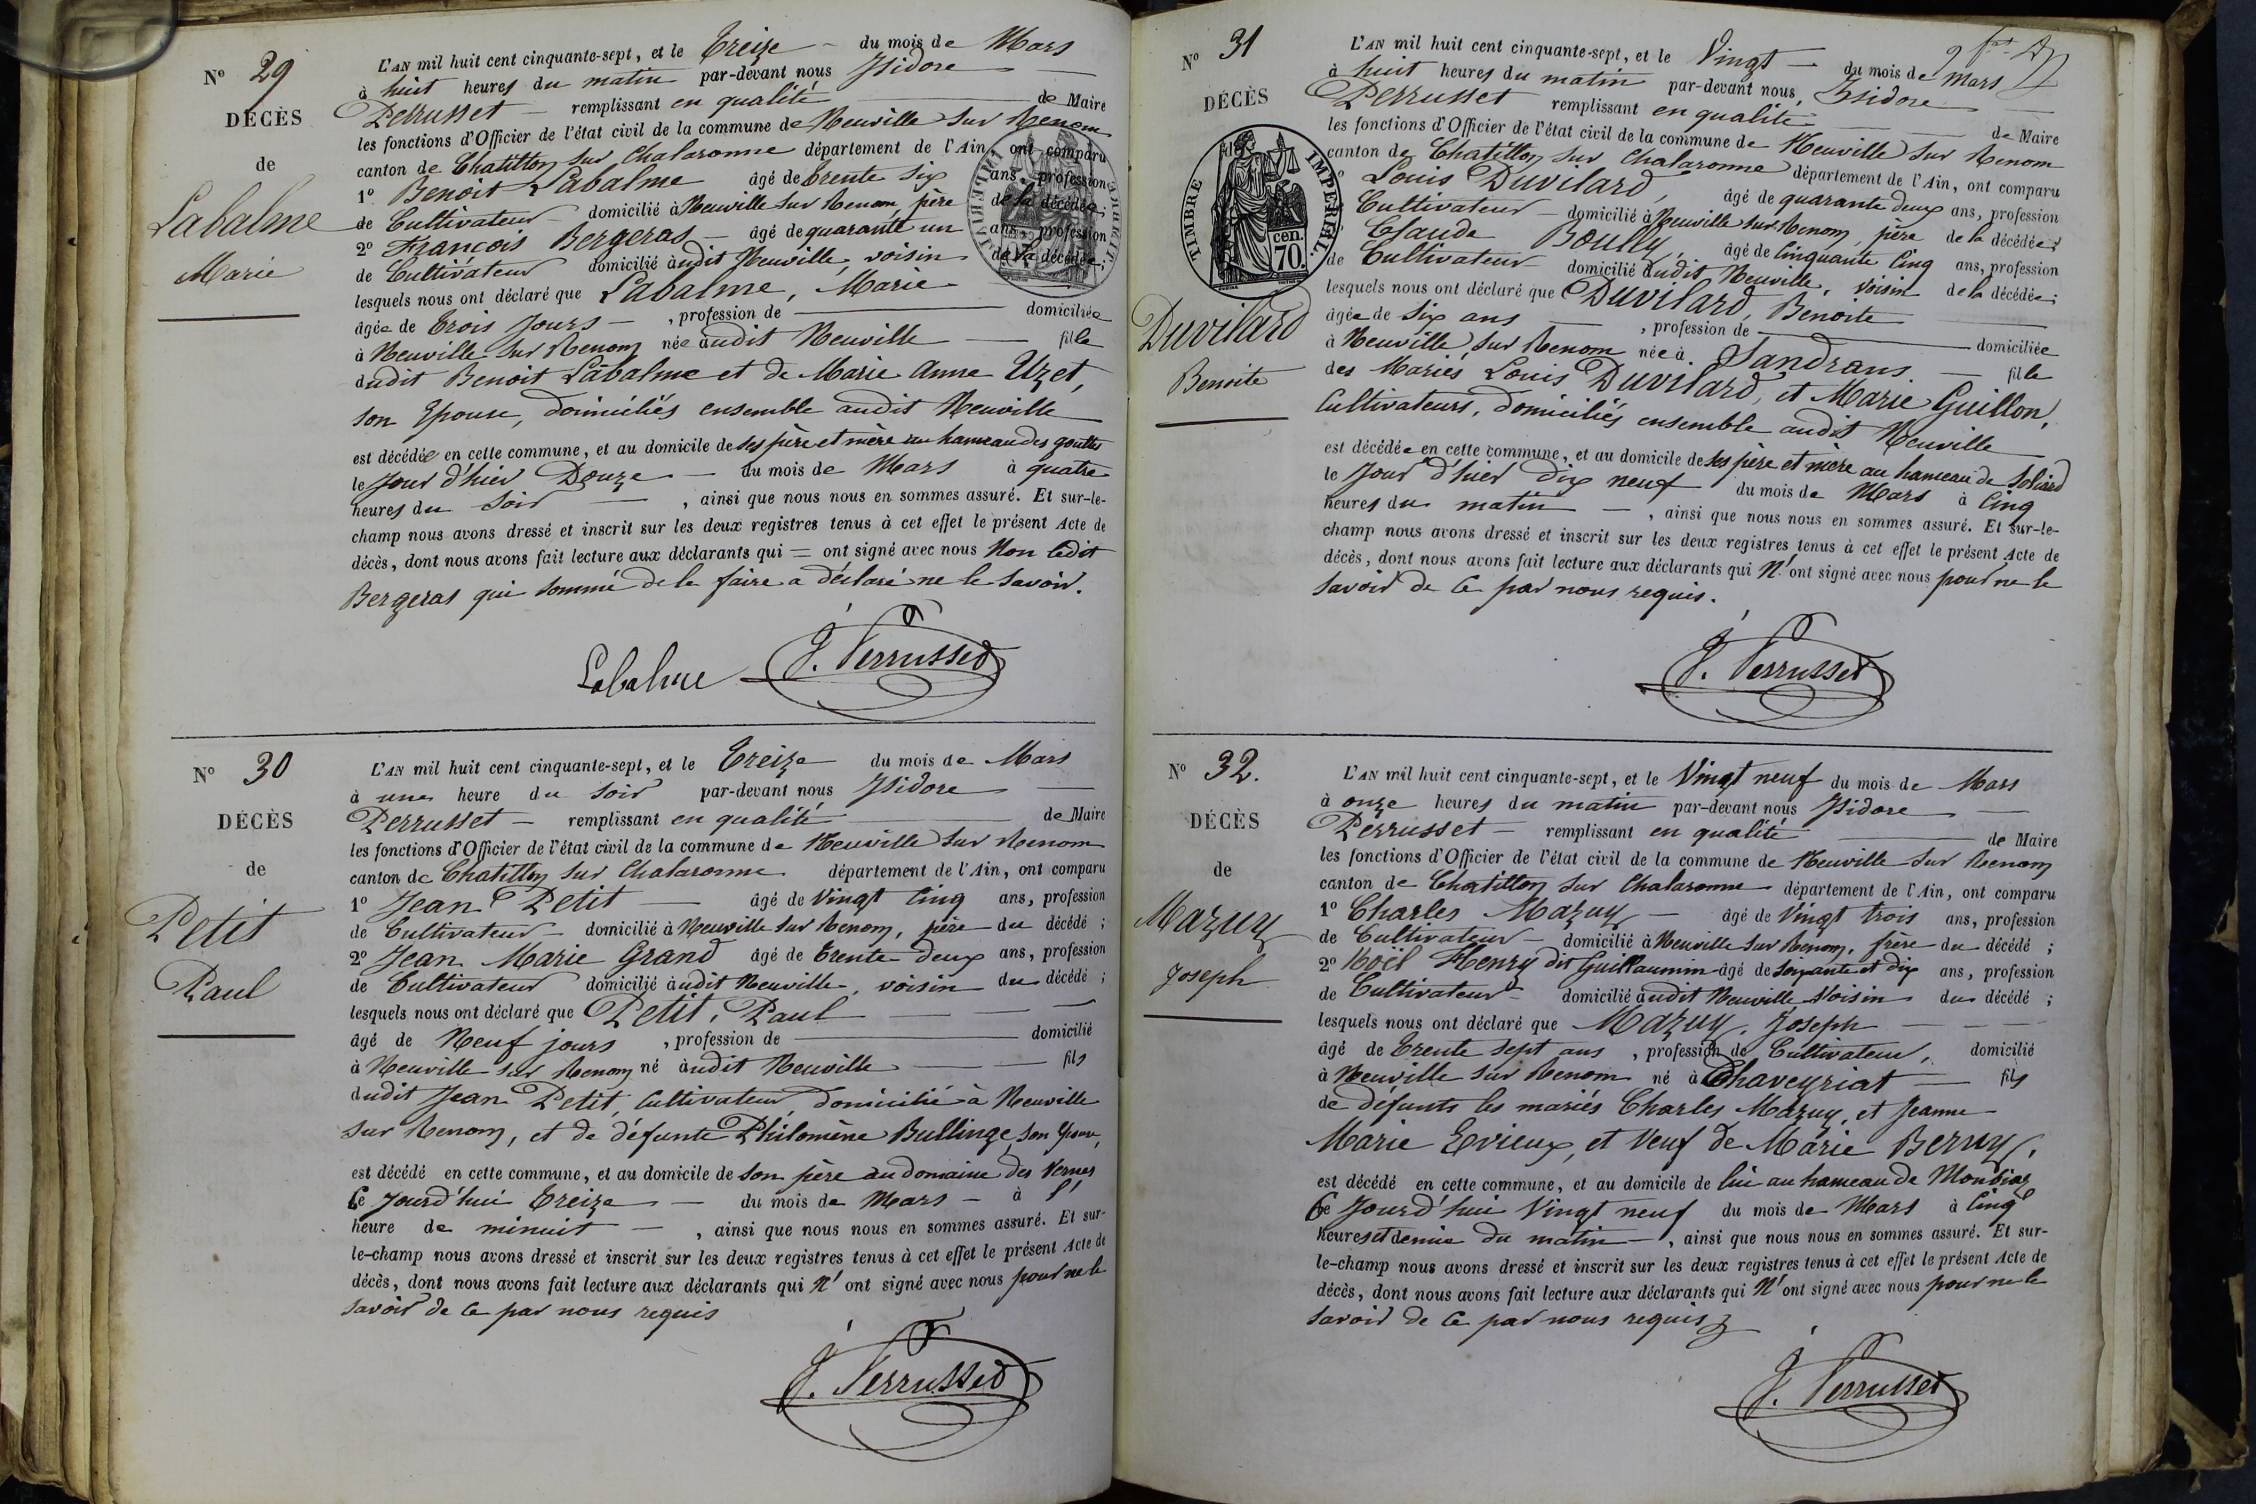 N° 29
DÉCÈS
de
Labalme
Marie
L'AN mil huit cent cinquante-sept, et le Treize du mois de Mars
à huit heures du matin par-devant nous Isidore
Perrusset remplissant en qualité de Maire
les fonctions d'Officier de l'état civil de la commune de Neuville sur Renom
canton de Chatillon sur Chalaronne département de l'Ain, ont comparu
1° Benoit Labalme âgé de trente six ans, profession
de Cultivateur domicilié à Neuville sur Renom, père de la décédée;
2° François Bergeras âgé de quarante un ans, profession
de Cultivateur domicilié audit Neuville, voisin de la décédée;
lesquels nous ont déclaré que Labalme, Marie
âgée de trois jours, profession de domiciliée
à Neuville sur Renom née audit Neuville fille
dudit Benoit Labalme et de Marie Anne Uzet,
son Epouse, domiciliés ensemble audit Neuville
est décédée en cette commune, et au domicile de ses père et mère au hameau des gouttes
le jour d'hier Douze du mois de Mars à quatre
heures du soir, ainsi que nous nous en sommes assuré. Et sur-le-
champ nous avons dressé et inscrit sur les deux registres tenus à cet effet le présent Acte de
décès, dont nous avons fait lecture aux déclarants qui = ont signé avec nous Non ledit
Bergeras qui sommé de le faire a déclaré ne le savoir.
Labalme J. Perrusset
N° 30
DÉCÈS
de
Petit
Paul
L'AN mil huit cent cinquante-sept, et le Treize du mois de Mars
à une heure du soir par-devant nous Isidore
Perrusset remplissant en qualité de Maire
les fonctions d'Officier de l'état civil de la commune de Neuville sur Renom
canton de Chatillon sur Chalaronne département de l'Ain, ont comparu
1° Jean Petit âgé de Vingt Cinq ans, profession
de Cultivateur domicilié à Neuville sur Renom, père du décédé;
2° Jean Marie Grand âgé de trente deux ans, profession
de Cultivateur domicilié audit Neuville, voisin du décédé;
lesquels nous ont déclaré que Petit, Paul
âgé de Neuf jours, profession de domicilié
à Neuville sur Renom né audit Neuville fils
dudit Jean Petit, Cultivateur, domicilié à Neuville
sur Renom, et de défunte Philomène Bullinge, son Epouse,
est décédé en cette commune, et au domicile de son père au domaine des Vernes
Ce jourd'hui Treize du mois de Mars à l'
heure de minuit, ainsi que nous nous en sommes assuré. Et sur-
le-champ nous avons dressé et inscrit sur les deux registres tenus à cet effet le présent Acte de
décès, dont nous avons fait lecture aux déclarants qui N'ont signé avec nous pour ne le
savoir de ce par nous requis
J. Perrusset
N° 31
DÉCÈS
de
TIMBRE IMPERIAL
70 cen.
Duvilard
Benoite
L'AN mil huit cent cinquante-sept, et le Vingt du mois de Mars
à huit heures du matin par-devant nous, Isidore
Perrusset remplissant en qualité de Maire
les fonctions d'Officier de l'état civil de la commune de Neuville sur Renom
canton de Chatillon sur Chalaronne département de l'Ain, ont comparu
Louis Duvilard, âgé de quarante deux ans, profession
Cultivateur domicilié à Neuville sur Renom, père de la décédée;
Claude Boully, âgé de Cinquante Cinq ans, profession
de Cultivateur domicilié audit Neuville, voisin de la décédée;
lesquels nous ont déclaré que Duvilard, Benoite
âgée de six ans, profession de domiciliée
à Neuville sur Renom née à Sandrans fille
des Mariés Louis Duvilard, et Marie Guillon,
Cultivateurs, domiciliés ensemble audit Neuville
est décédée en cette commune, et au domicile de ses père et mère au hameau de Soliard
le jour d'hier dix neuf du mois de Mars à Cinq
heures du matin, ainsi que nous nous en sommes assuré. Et sur-le-
champ nous avons dressé et inscrit sur les deux registres tenus à cet effet le présent Acte de
décès, dont nous avons fait lecture aux déclarants qui N'ont signé avec nous pour ne le
savoir de ce par nous requis.
J. Perrusset
N° 32.
DÉCÈS
de
Mazuy
Joseph
L'AN mil huit cent cinquante-sept, et le Vingt neuf du mois de Mars
à onze heures du matin par-devant nous Isidore
Perrusset remplissant en qualité de Maire
les fonctions d'Officier de l'état civil de la commune de Neuville sur Renom
canton de Chatillon sur Chalaronne département de l'Ain, ont comparu
1° Charles Mazuy âgé de Vingt trois ans, profession
de Cultivateur domicilié à Neuville sur Renom, frère du décédé;
2° Noël Henry dit Guillaumin âgé de soixante et dix ans, profession
de Cultivateur domicilié audit Neuville voisin du décédé;
lesquels nous ont déclaré que Mazuy, Joseph
âgé de trente sept ans, profession de Cultivateur, domicilié
à Neuville sur Renom né à Chaveyriat fils
de défunts les mariés Charles Mazuy, et Jeanne
Marie Evieux, et Veuf de Marie Berruy,
est décédé en cette commune, et au domicile de lui au hameau de Monbiaz
Ce jourd'hui Vingt neuf du mois de Mars à Cinq
heures et demie du matin, ainsi que nous nous en sommes assuré. Et sur-
le-champ nous avons dressé et inscrit sur les deux registres tenus à cet effet le présent Acte de
décès, dont nous avons fait lecture aux déclarants qui N'ont signé avec nous pour ne le
savoir de ce par nous requis
J. Perrusset